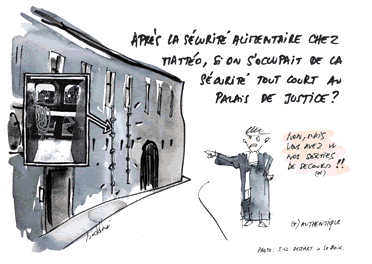 APRÈS LA SÉCURITÉ ALIMENTAIRE CHEZ
MATTÉO, SI ON S'OCCUPAIT DE LA
SÉCURITÉ TOUT COURT AU
PALAIS DE JUSTICE?
NON, MAIS
VOUS AVEZ VU
NOS SORTIES
DE SECOURS!!
(*)
(*) AUTHENTIQUE
PHOTO: